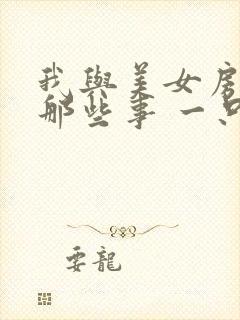 我與美女房
那些事 一只
耍龍